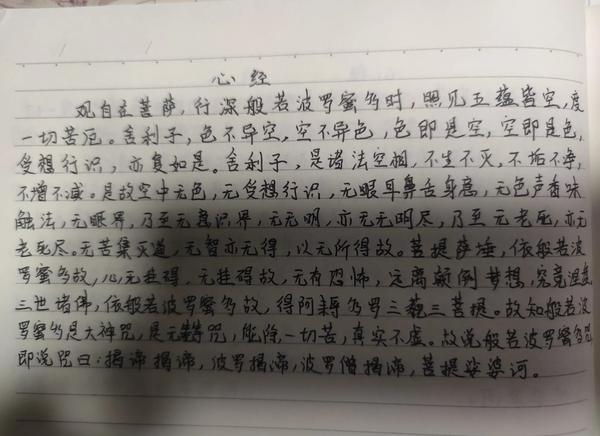 心经
观自在菩萨，行深般若波罗蜜多时，照见五蕴皆空，度
一切苦厄。舍利子，色不异空，空不异色，色即是空，空即是色，
受想行识，亦复如是。舍利子，是诸法空相，不生不灭，不垢不净，
不增不减。是故空中无色，无受想行识，无眼耳鼻舌身意，无色声香味
触法，无眼界，乃至无意识界，无无明，亦无无明尽，乃至无老死，亦无
老死尽。无苦集灭道，无智亦无得，以无所得故。菩提萨埵，依般若波
罗蜜多故，心无挂碍，无挂碍故，无有恐怖，远离颠倒梦想，究竟涅槃
三世诸佛，依般若波罗蜜多故，得阿耨多罗三藐三菩提。故知般若波
罗蜜多是大神咒，是无等咒，能除一切苦，真实不虚。故说般若波罗蜜多咒
即说咒曰：揭谛揭谛，波罗揭谛，波罗僧揭谛，菩提娑婆诃。